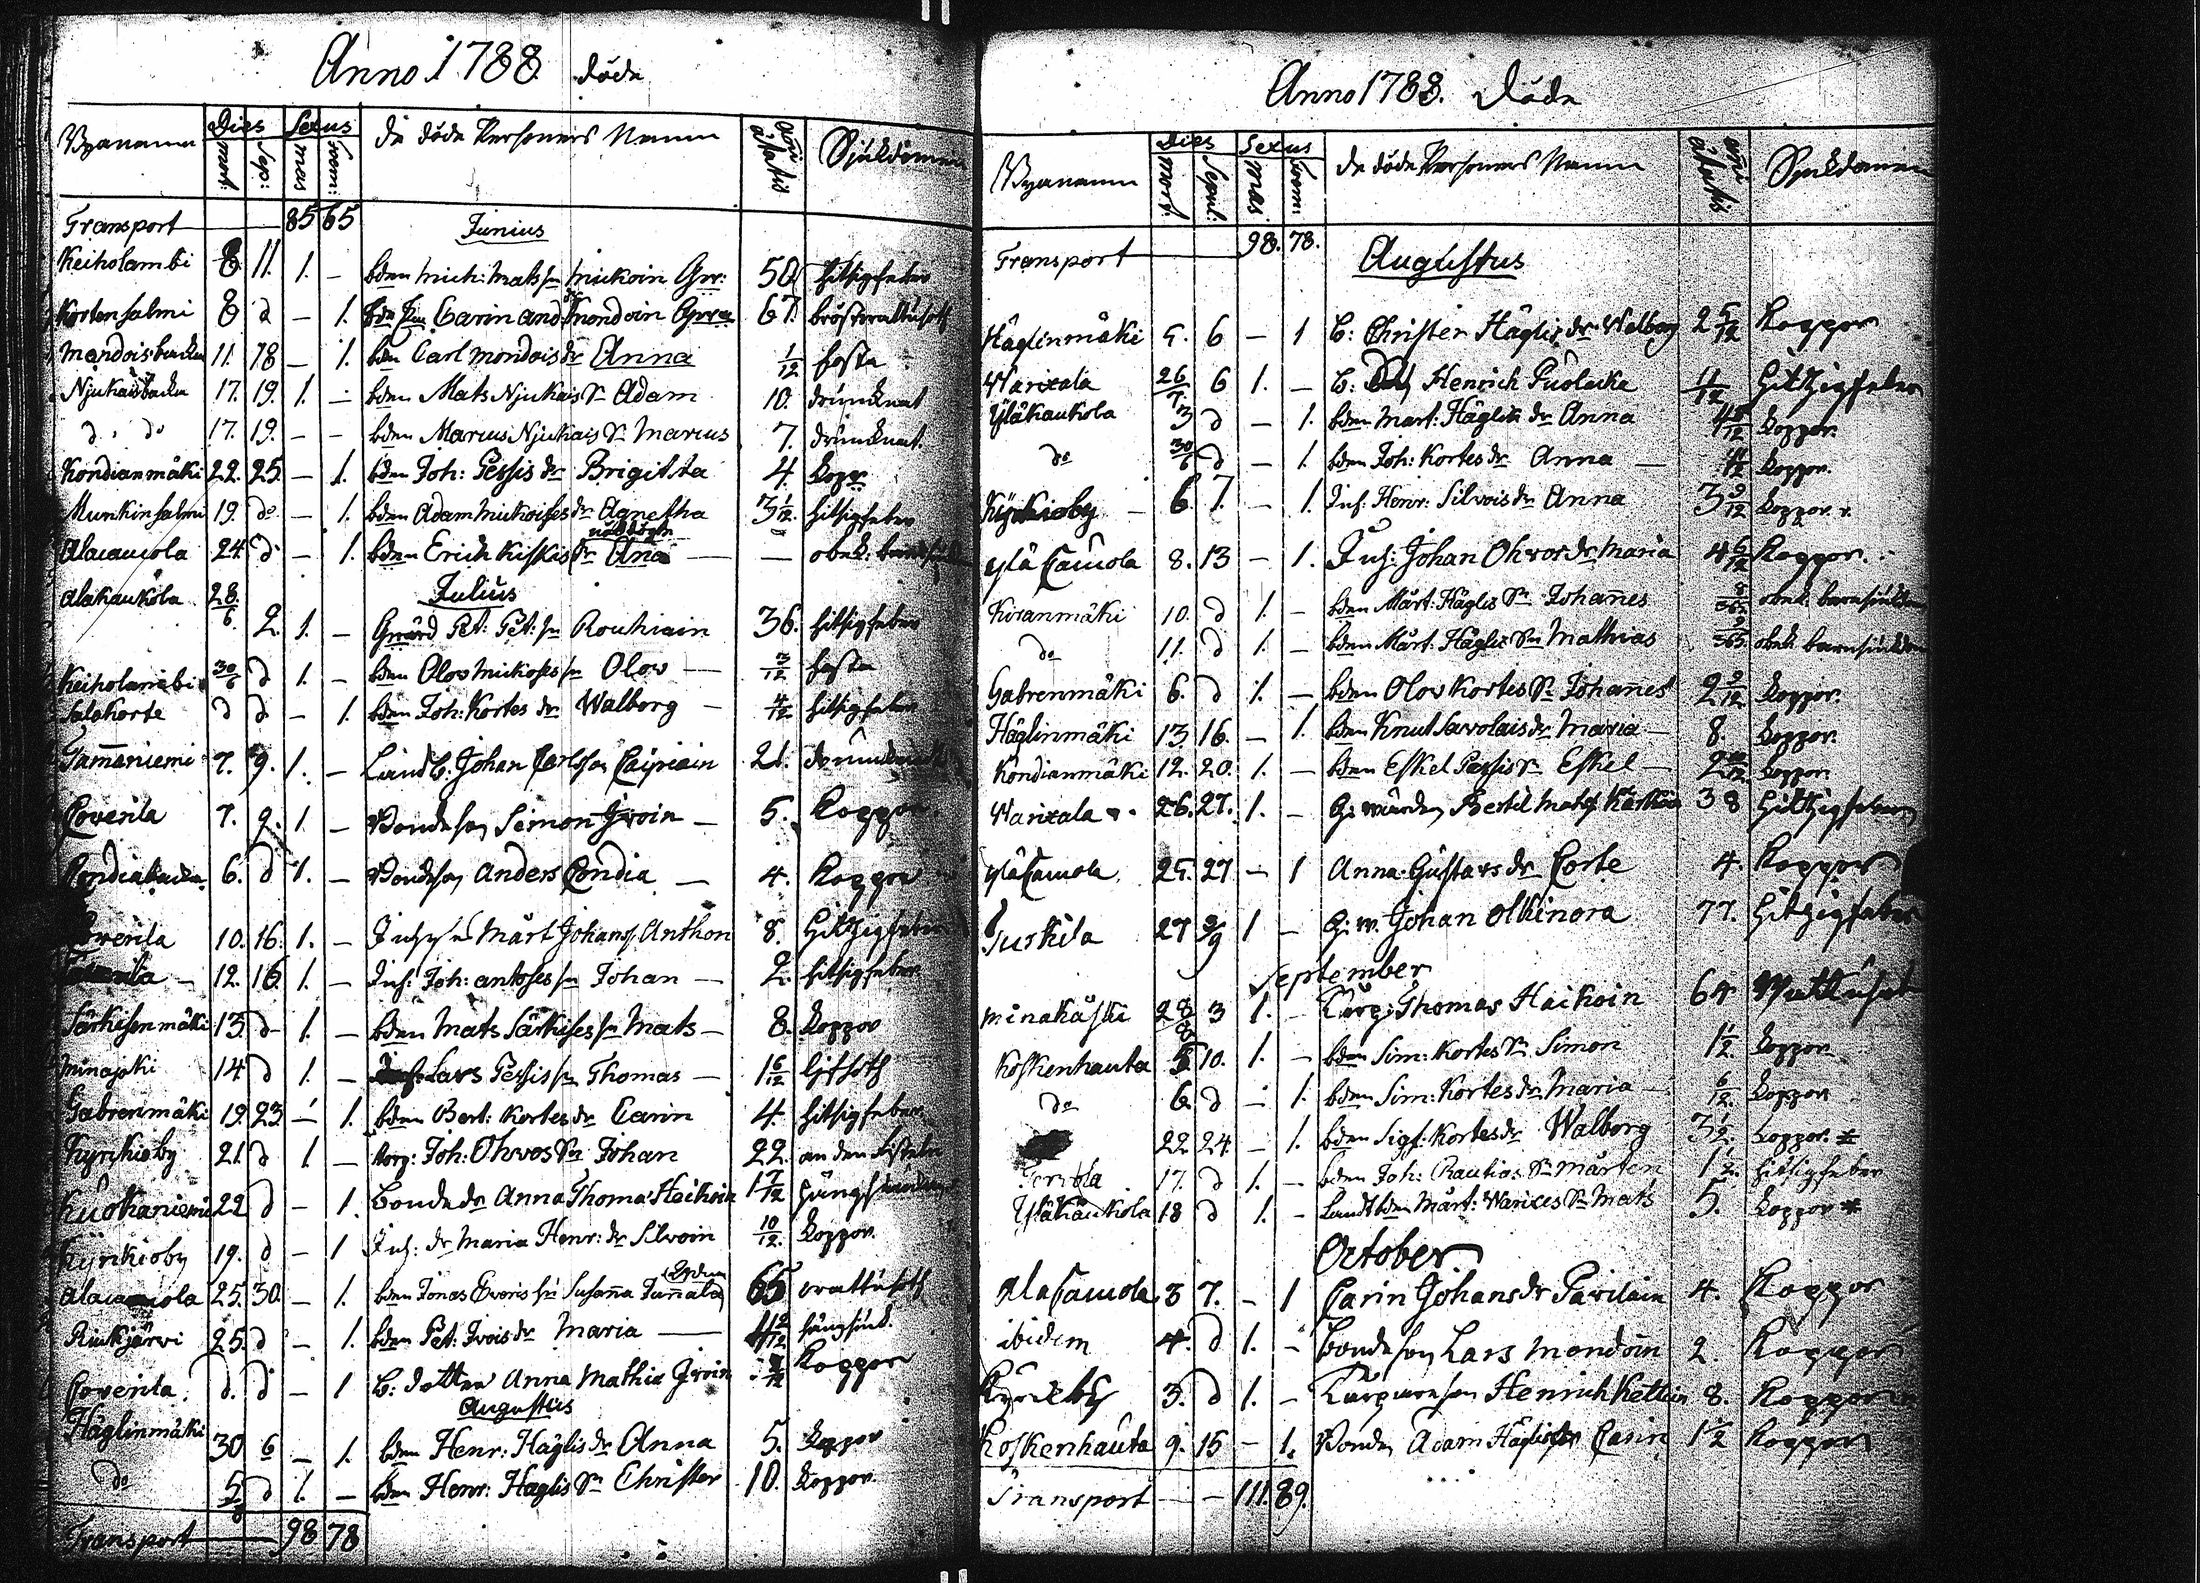 Anno 1788. döde
Bynamn Dies Sexus de döde Personers Namn Anni ætatis Sjukdomar
mort: Sep: mas foem:
Transport — — 85 65 Junius
Keiholambi 8. 11. 1. — bdn Mich: Mats sn Mickoin Gvr: 50 hitsigfeber
Kortensalmi 8 d — 1. Carin And: Mondoin 67.
Mondoisbacka 11. 18 — 1. bdn Carl Mondois dr Anna 1/12 hosta
Njukaisbacka 17. 19. 1 — bdn Mats Njukais Sn Adam 10. drunknat
d: do 17. 19. — — bdn Marcus Njukais Sn Marcus 7. drunknat.
Kondianmäki 22. 25. — 1. bdn Joh: Pessis dr Brigitta 4. kopp
Munkinsalmi 19. do — 1. bdn Adam Mickoises dr Agnetha 3 1/12 hitsigfeber
Alacaucola 24. d — 1. bdn Erich Kiskis dr Ana nöddöpt — obek.
Julius
Alakaukola 28/6 2. 1. — Gvärd Pet: Pet: sn Rouhiain 36. hitsigfeber
Keiholambi 30/6 d 1. — bdn Olov Mickoises sn Olov — 3/12 hosta
Salakorte d d — 1. bdn Joh: Kortes dr Walborg — 4/12 hitsigfeber
Tammaniemi 7. 9. 1. — Landb: Johan Carlsson Caijriain 21. drunknat
Coverila 7. 9. 1 — Bondeson Simon Jvoin — 5. Koppor
Condiabacka 6. d 1. — Bondeson Anders Condia — 4. Koppor
Coverila 10. 16. 1. — Märt Johans Anthon 8. Hitzigfeber
— 12. 16 1. — Inh: Joh: Antoses sn Johan — 2. hitsigfeber
Särkisenmäki 13. d 1. — bdn Mats Särkises sn Mats — 8. koppor
Minajoki 14 d 1. — Lars Pessis sn Thomas — 1 6/12
Gabrenmäki 19. 23. — 1. bdn Bert: Kortes dr Carin 4. hitsigfeber
Kyrkioby 21. d 1 — torp: Joh: Ohvos Sn Johan 22.
Kuokaniemi 22 d — 1. Bonde dr Anna Thoma Heikoin 1 7/12
Kyrkioby 19. d — 1 Inh: dr Maria Henr: dr Silvoin 10/12 koppor.
Alacaucola 25. 30. — 1. bdn Jonas Evoris Susanna Junnala 65
Rukjärvi 25. d — 1. bdn Pet: Ivois dr Maria —
Coverila d. d — 1 B: dotter Anna Mathia Jvoin Koppor
Augustus
Häglinmäki 30 6 — 1. bdn Henr: Häglis dr Anna 5. koppor
do 5 d 1. — bdn Henr: Häglis Sn Christer 10. koppor
Transport — 98 78
Anno 1788. Döde
Bynamn Dies Sexus de döde Personers Namn anni ætatis Sjukdomar
mort. Sepul: mas foem:
Transport — 98. 78. Augustus
Häglinmäki 5. 6 — 1 B: Christer Häglis dr Walborg 2 5/12 Koppor
Warixala 26/7 6 1. — B: Henrich Puolacka 11/12 Hitzigfeber
Yläkaukola 3 d — 1. bdn Mart: Häglis dr Anna koppor.
do 30/6 d — 1. bdn Joh: Kortes dr Anna — koppor
Kyrkioby — 6. 7. — 1. Inh: Henr: Silvois dr Anna 3 9/12 koppor
Ylä Caucola 8. 13 — 1. Inh: Johan Ohvor dr Maria 4 6/12 Koppor.
Kiranmäki 10. d 1. — bdn Mårt: Häglis Sn Johannes 8/365 obek. barnsiukdom
do 11. d 1 — bdn Mårt: Häglis Sn Mathias 9/365 obek. barnsiukdom
Gabrenmäki 6. d 1. — bdn Olov Kortes Sn Johannes 2 9/12 koppor.
Häglinmäki 13. 16. — 1. bdn Knut Savolais dr Maria — 8. koppor.
Kondianmäki 12. 20. 1. — bdn Eskel Pessis Sn Eskel — koppor
Warixala 26. 27. 1. — G: wärden Bertil Mats 38 Hitzigfeber
Ylä Camola 25. 27 — 1 Anna Gustavs dr Corte 4. Koppor
Juskila 27 3/9 1 — G: w. Johan Olkinora 77. Hitzigfeber
September
Minakaski 28/8 3 1. — Torp: Thomas Haikoin 64
Koskenhauta 5 10. 1. — bdn Sim: Kortes Sn Simon 1 1/2 koppor
do 6 d — 1. bdn Sim: Kortes dr Maria — 6/12 koppor
22. 24. — 1. bdn Sigf: Kortes dr Walborg 3 1/2 koppor. *
17. d 1. — bdn Joh: Rautios Sn Mårten 1 1/2 hitsigfeber
Yläkaukola 18 d 1. — Landtbdn Mårt: Warices Sn Mats 5. koppor *
October
Ala Caucola 3 7. — 1 Carin Johans dr Pavilain 4. Koppor
ibidem 4. d 1. — Bondeson Lars Mondoin 2. Koppor
Kyrckby 3. d 1. — Torpareson Henrich Kettuin 8. Koppor
Koskenhauta 9. 15 — 1. Bonden Adam Häglis dr Carin 1 1/2 Koppor
Transport — — 111. 89.